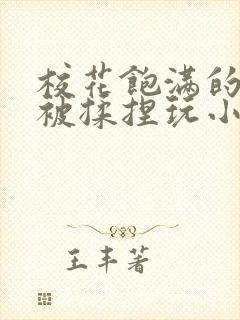 校花飽满的
被揉捏玩小
王丰著